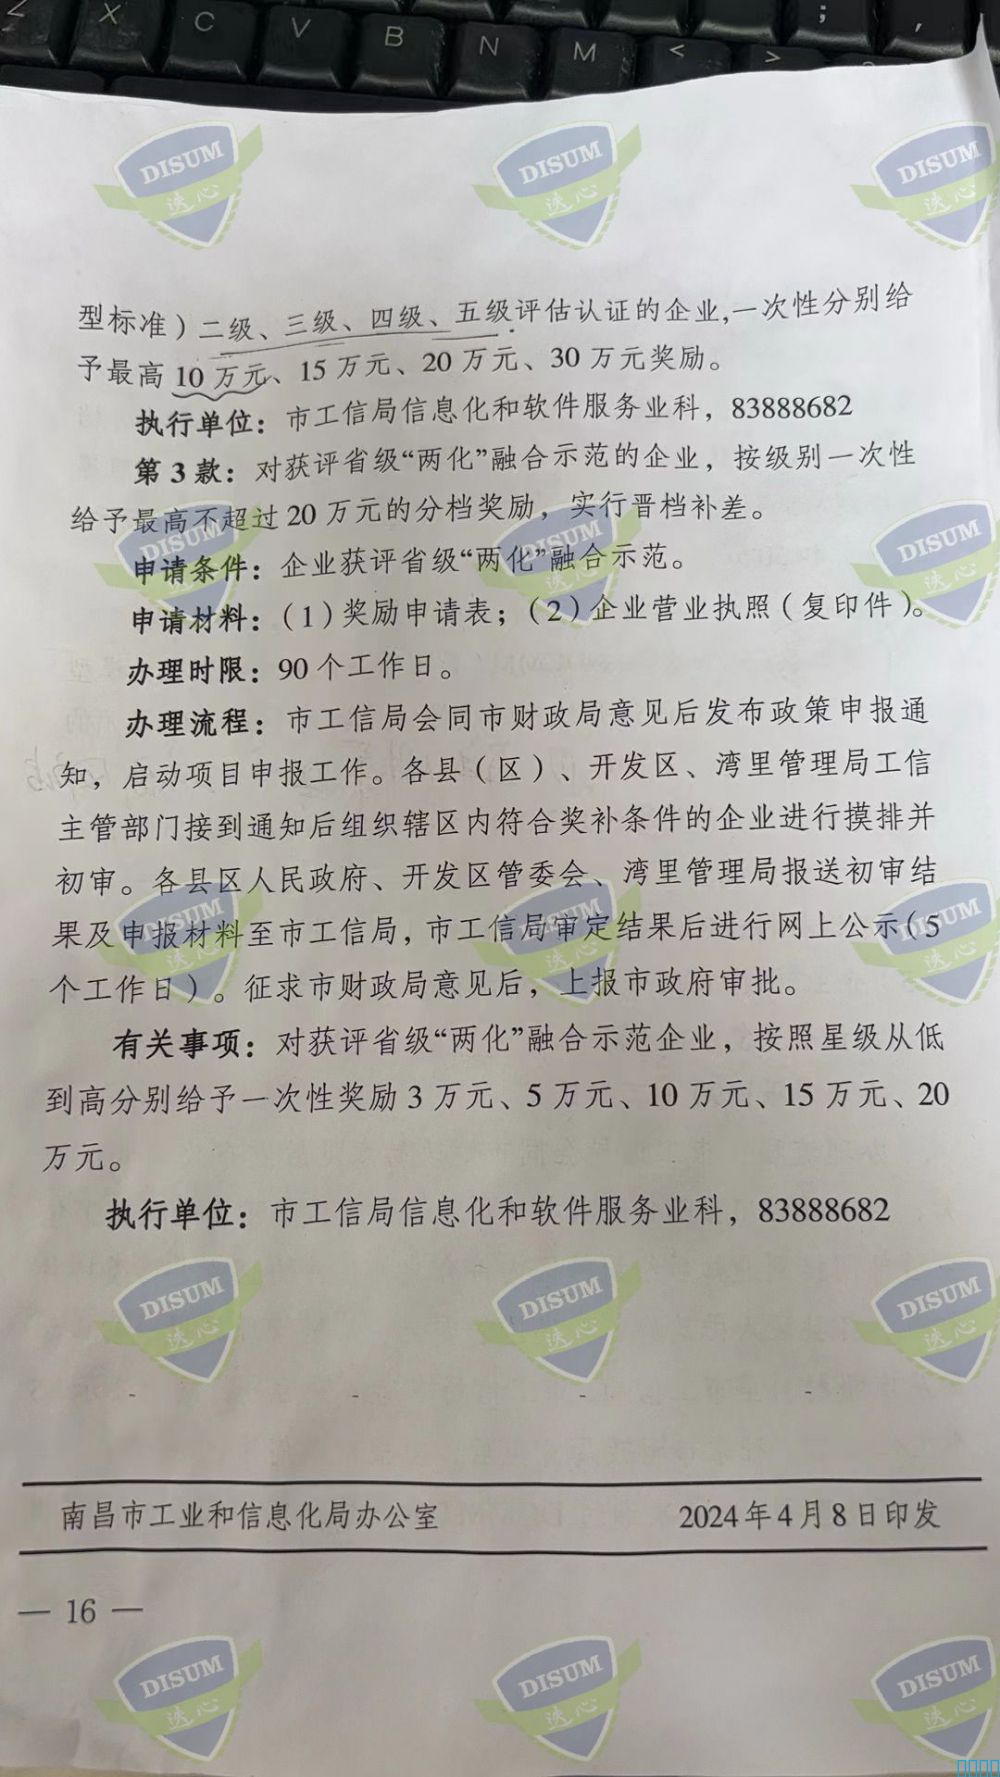 Z X C V B N M < >
; ,
DISUM 迭心 DISUM 迭心 DISUM 迭心
型标准）二级、三级、四级、五级评估认证的企业,一次性分别给
予最高 10 万元、15 万元、20 万元、30 万元奖励。
执行单位：市工信局信息化和软件服务业科，83888682
第 3 款：对获评省级“两化”融合示范的企业，按级别一次性
给予最高不超过 20 万元的分档奖励，实行晋档补差。
DISUM 迭心 DISUM 迭心 DISUM 迭心
申请条件：企业获评省级“两化”融合示范。
申请材料：（1）奖励申请表；（2）企业营业执照（复印件）。
办理时限：90 个工作日。
办理流程：市工信局会同市财政局意见后发布政策申报通
知，启动项目申报工作。各县（区）、开发区、湾里管理局工信
主管部门接到通知后组织辖区内符合奖补条件的企业进行摸排并
初审。各县区人民政府、开发区管委会、湾里管理局报送初审结
果及申报材料至市工信局，市工信局审定结果后进行网上公示（5
DISUM 迭心 DISUM 迭心 DISUM 迭心
个工作日）。征求市财政局意见后，上报市政府审批。
有关事项：对获评省级“两化”融合示范企业，按照星级从低
到高分别给予一次性奖励 3 万元、5 万元、10 万元、15 万元、20
万元。
执行单位：市工信局信息化和软件服务业科，83888682
DISUM 迭心 DISUM 迭心 DISUM 迭心
南昌市工业和信息化局办公室 2024年4月8日印发
— 16 —
DISUM 迭心 DISUM 迭心 DISUM 迭心